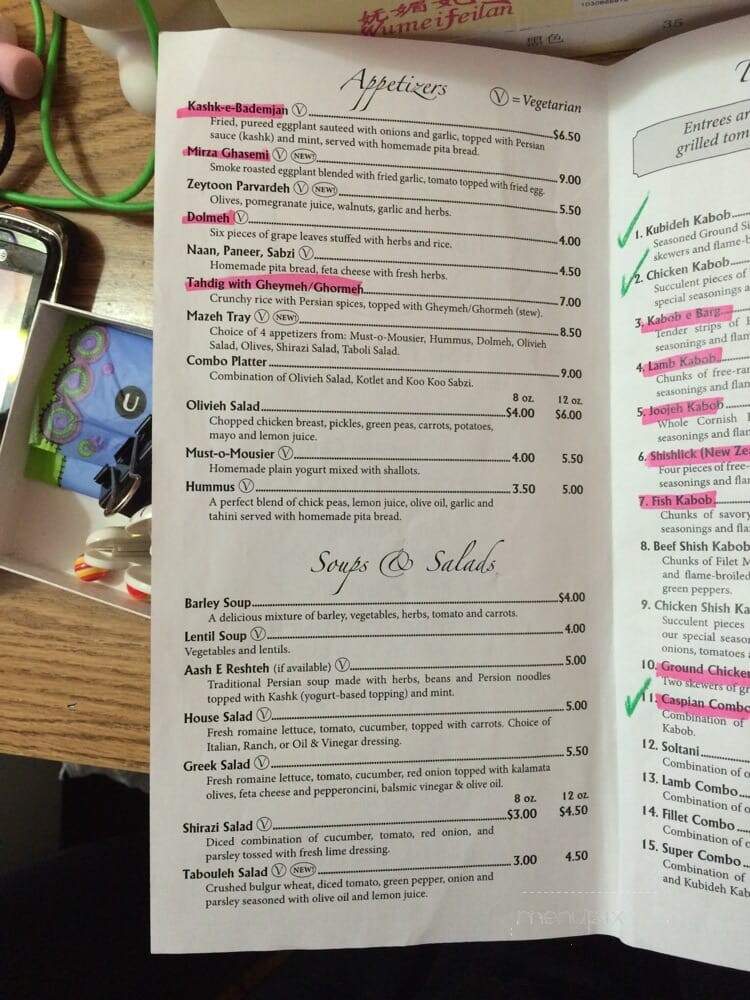 妩媚妃兰
Wumeifeilan
黑色
35
U
Appetizers
Ⓥ = Vegetarian
Kashk-e-Bademjan Ⓥ $6.50
Fried, pureed eggplant sauteed with onions and garlic, topped with Persian
sauce (kashk) and mint, served with homemade pita bread.
Mirza Ghasemi Ⓥ NEW! 9.00
Smoke roasted eggplant blended with fried garlic, tomato topped with fried egg.
Zeytoon Parvardeh Ⓥ NEW! 5.50
Olives, pomegranate juice, walnuts, garlic and herbs.
Dolmeh Ⓥ 4.00
Six pieces of grape leaves stuffed with herbs and rice.
Naan, Paneer, Sabzi Ⓥ 4.50
Homemade pita bread, feta cheese with fresh herbs.
Tahdig with Gheymeh/Ghormeh 7.00
Crunchy rice with Persian spices, topped with Gheymeh/Ghormeh (stew).
Mazeh Tray Ⓥ NEW! 8.50
Choice of 4 appetizers from: Must-o-Mousier, Hummus, Dolmeh, Olivieh
Salad, Olives, Shirazi Salad, Taboli Salad.
Combo Platter 9.00
Combination of Olivieh Salad, Kotlet and Koo Koo Sabzi.
8 oz. 12 oz.
Olivieh Salad $4.00 $6.00
Chopped chicken breast, pickles, green peas, carrots, potatoes,
mayo and lemon juice.
Must-o-Mousier Ⓥ 4.00 5.50
Homemade plain yogurt mixed with shallots.
Hummus Ⓥ 3.50 5.00
A perfect blend of chick peas, lemon juice, olive oil, garlic and
tahini served with homemade pita bread.
Soups & Salads
Barley Soup $4.00
A delicious mixture of barley, vegetables, herbs, tomato and carrots.
Lentil Soup Ⓥ 4.00
Vegetables and lentils.
Aash E Reshteh (if available) Ⓥ 5.00
Traditional Persian soup made with herbs, beans and Persion noodles
topped with Kashk (yogurt-based topping) and mint.
House Salad Ⓥ 5.00
Fresh romaine lettuce, tomato, cucumber, topped with carrots. Choice of
Italian, Ranch, or Oil & Vinegar dressing.
Greek Salad Ⓥ 5.50
Fresh romaine lettuce, tomato, cucumber, red onion topped with kalamata
olives, feta cheese and pepperoncini, balsmic vinegar & olive oil.
8 oz. 12 oz.
Shirazi Salad Ⓥ $3.00 $4.50
Diced combination of cucumber, tomato, red onion, and
parsley tossed with fresh lime dressing.
Tabouleh Salad Ⓥ NEW! 3.00 4.50
Crushed bulgur wheat, diced tomato, green pepper, onion and
parsley seasoned with olive oil and lemon juice.
Entrees ar
grilled tom
1. Kubideh Kabob
Seasoned Ground Si
skewers and flame-b
2. Chicken Kabob
Succulent pieces of
special seasonings a
3. Kabob e Barg
Tender strips of
seasonings and flam
4. Lamb Kabob
Chunks of free-ran
seasonings and flan
5. Joojeh Kabob
Whole Cornish
seasonings and flar
6. Shishlick (New Zea
Four pieces of free-
seasonings and flar
7. Fish Kabob
Chunks of savory
seasonings and fla
8. Beef Shish Kabob
Chunks of Filet M
and flame-broiled
green peppers.
9. Chicken Shish Ka
Succulent pieces
our special season
onions, tomatoes a
10. Ground Chicken
Two skewers of gr
11. Caspian Combo
Combination of
Kabob.
12. Soltani
Combination of o
13. Lamb Combo
Combination of o
14. Fillet Combo
Combination of o
15. Super Combo
Combination of
and Kubideh Kab
menupix